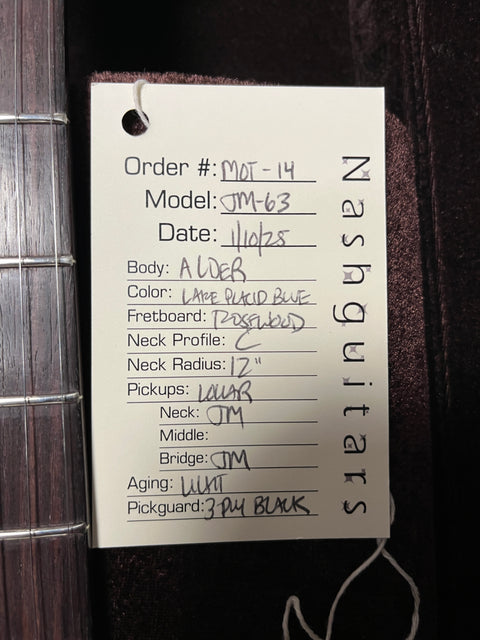 Order #: MOT-14
Model: JM-63
Date: 1/10/25
Body: ALDER
Color: LAKE PLACID BLUE
Fretboard: ROSEWOOD
Neck Profile: C
Neck Radius: 12"
Pickups: LOLLAR
Neck: JM
Middle:
Bridge: JM
Aging:
Pickguard: 3 PLY BLACK
Nashguitars